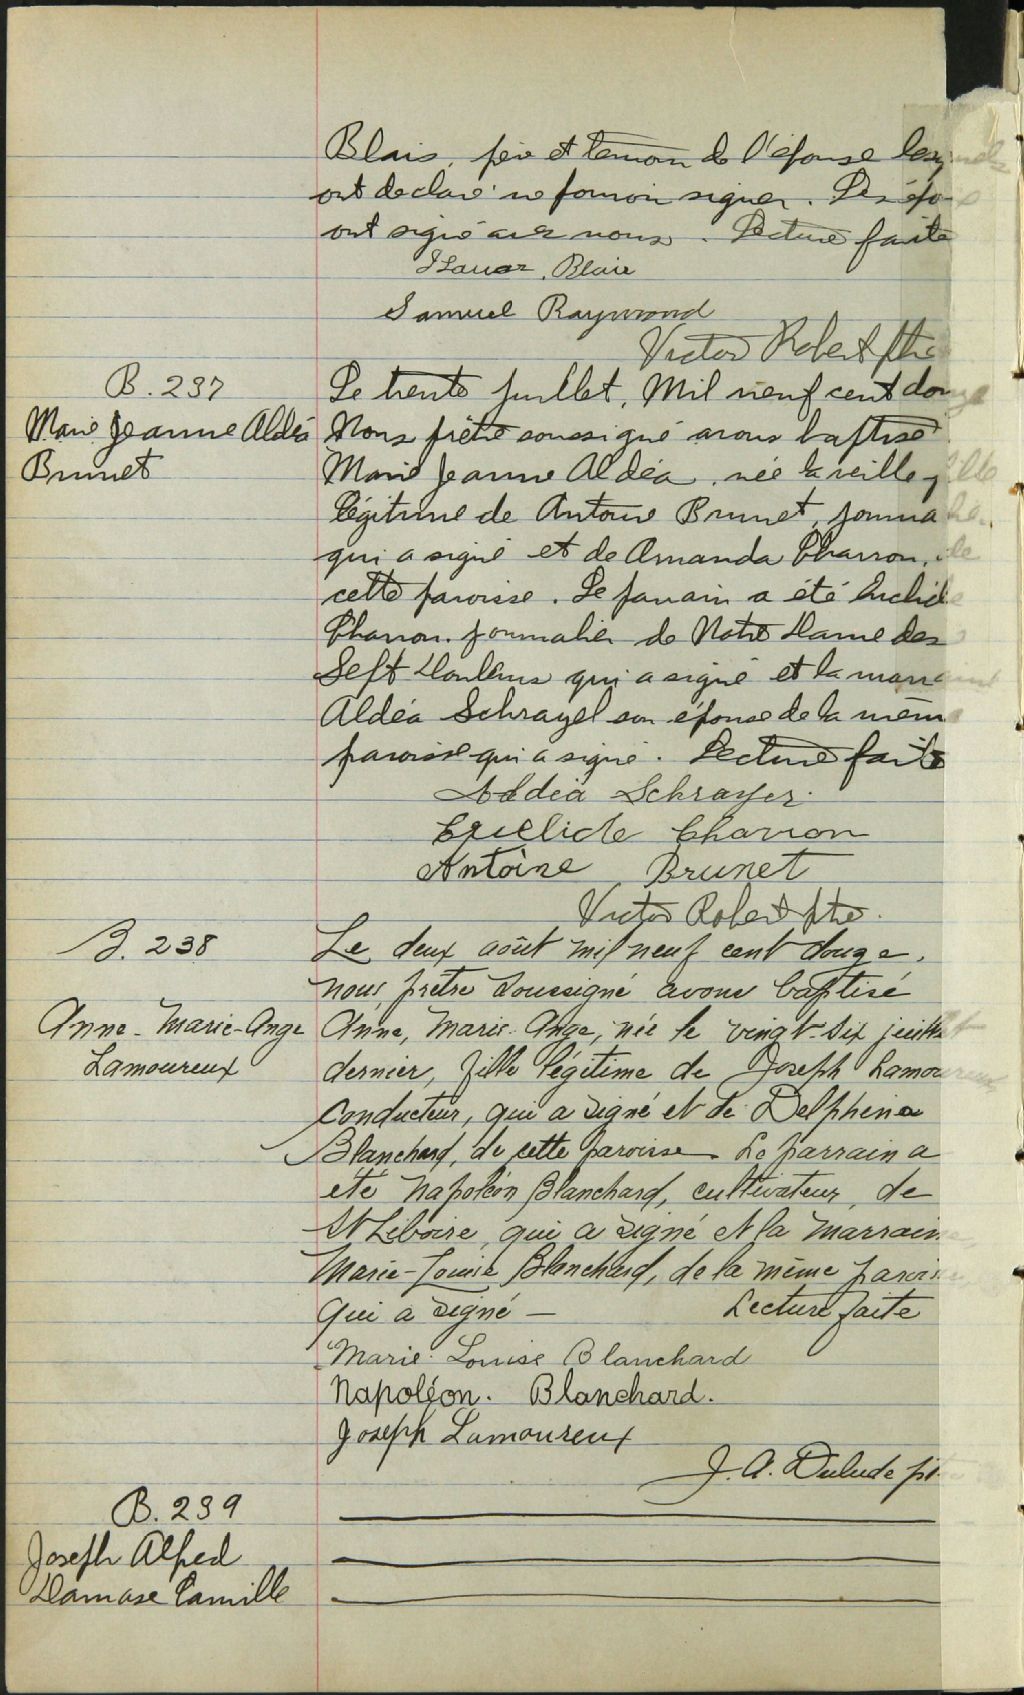 Blais, père et témoin de l'épouse lesquels
ont déclaré ne pouvoir signer. Les époux
ont signé avec nous. Lecture faite
Blais
Samuel Raymond
Victor Robert ptre
B. 237
Marie Jeanne Aldéa
Brunet
Le trente juillet, Mil neuf cent douze
Nous prêtre soussigné avons baptisé
Marie Jeanne Aldéa, née la veille, fille
légitime de Antoine Brunet, journalier
qui a signé et de Amanda Charron, de
cette paroisse. Le parrain a été Euclide
Charron journalier de Notre Dame des
Sept Douleurs qui a signé et la marraine
Aldéa Schrayel son épouse de la même
paroisse qui a signé. Lecture faite
Aldéa Schrayer
Euclide Charron
Antoine Brunet
Victor Robert ptre.
B. 238
Anne-Marie-Ange
Lamoureux
Le deux août mil neuf cent douze,
nous, prêtre soussigné avons baptisé
Anne, Marie-Ange, née le vingt-six juillet
dernier, fille légitime de Joseph Lamoureux
conducteur, qui a signé et de Delphine
Blanchard, de cette paroisse. Le parrain a
été Napoléon Blanchard, cultivateur, de
St Liboire, qui a signé et la marraine,
Marie-Louise Blanchard, de la même paroisse,
qui a signé — Lecture faite
Marie Louise Blanchard
Napoléon. Blanchard.
Joseph Lamoureux
J. A. Dulude ptre
B. 239
Joseph Alfred
Damase Camille